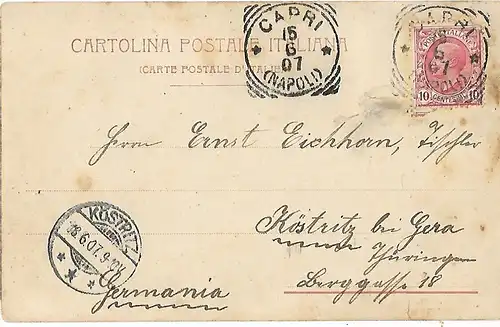 CAPRI
15
6
07
(NAPOLI)
CAPRI
6
07
(NAPOLI)
POSTE ITALIANE
10 CENTESIMI 10
CARTOLINA POSTALE ITALIANA
(CARTE POSTALE D'ITALIE)
Herrn Ernst Eichhorn, Tischler
Köstritz bei Gera
Thüringen
Berggasse 18
Germania
KÖSTRITZ
18.6.07. 9-10V.